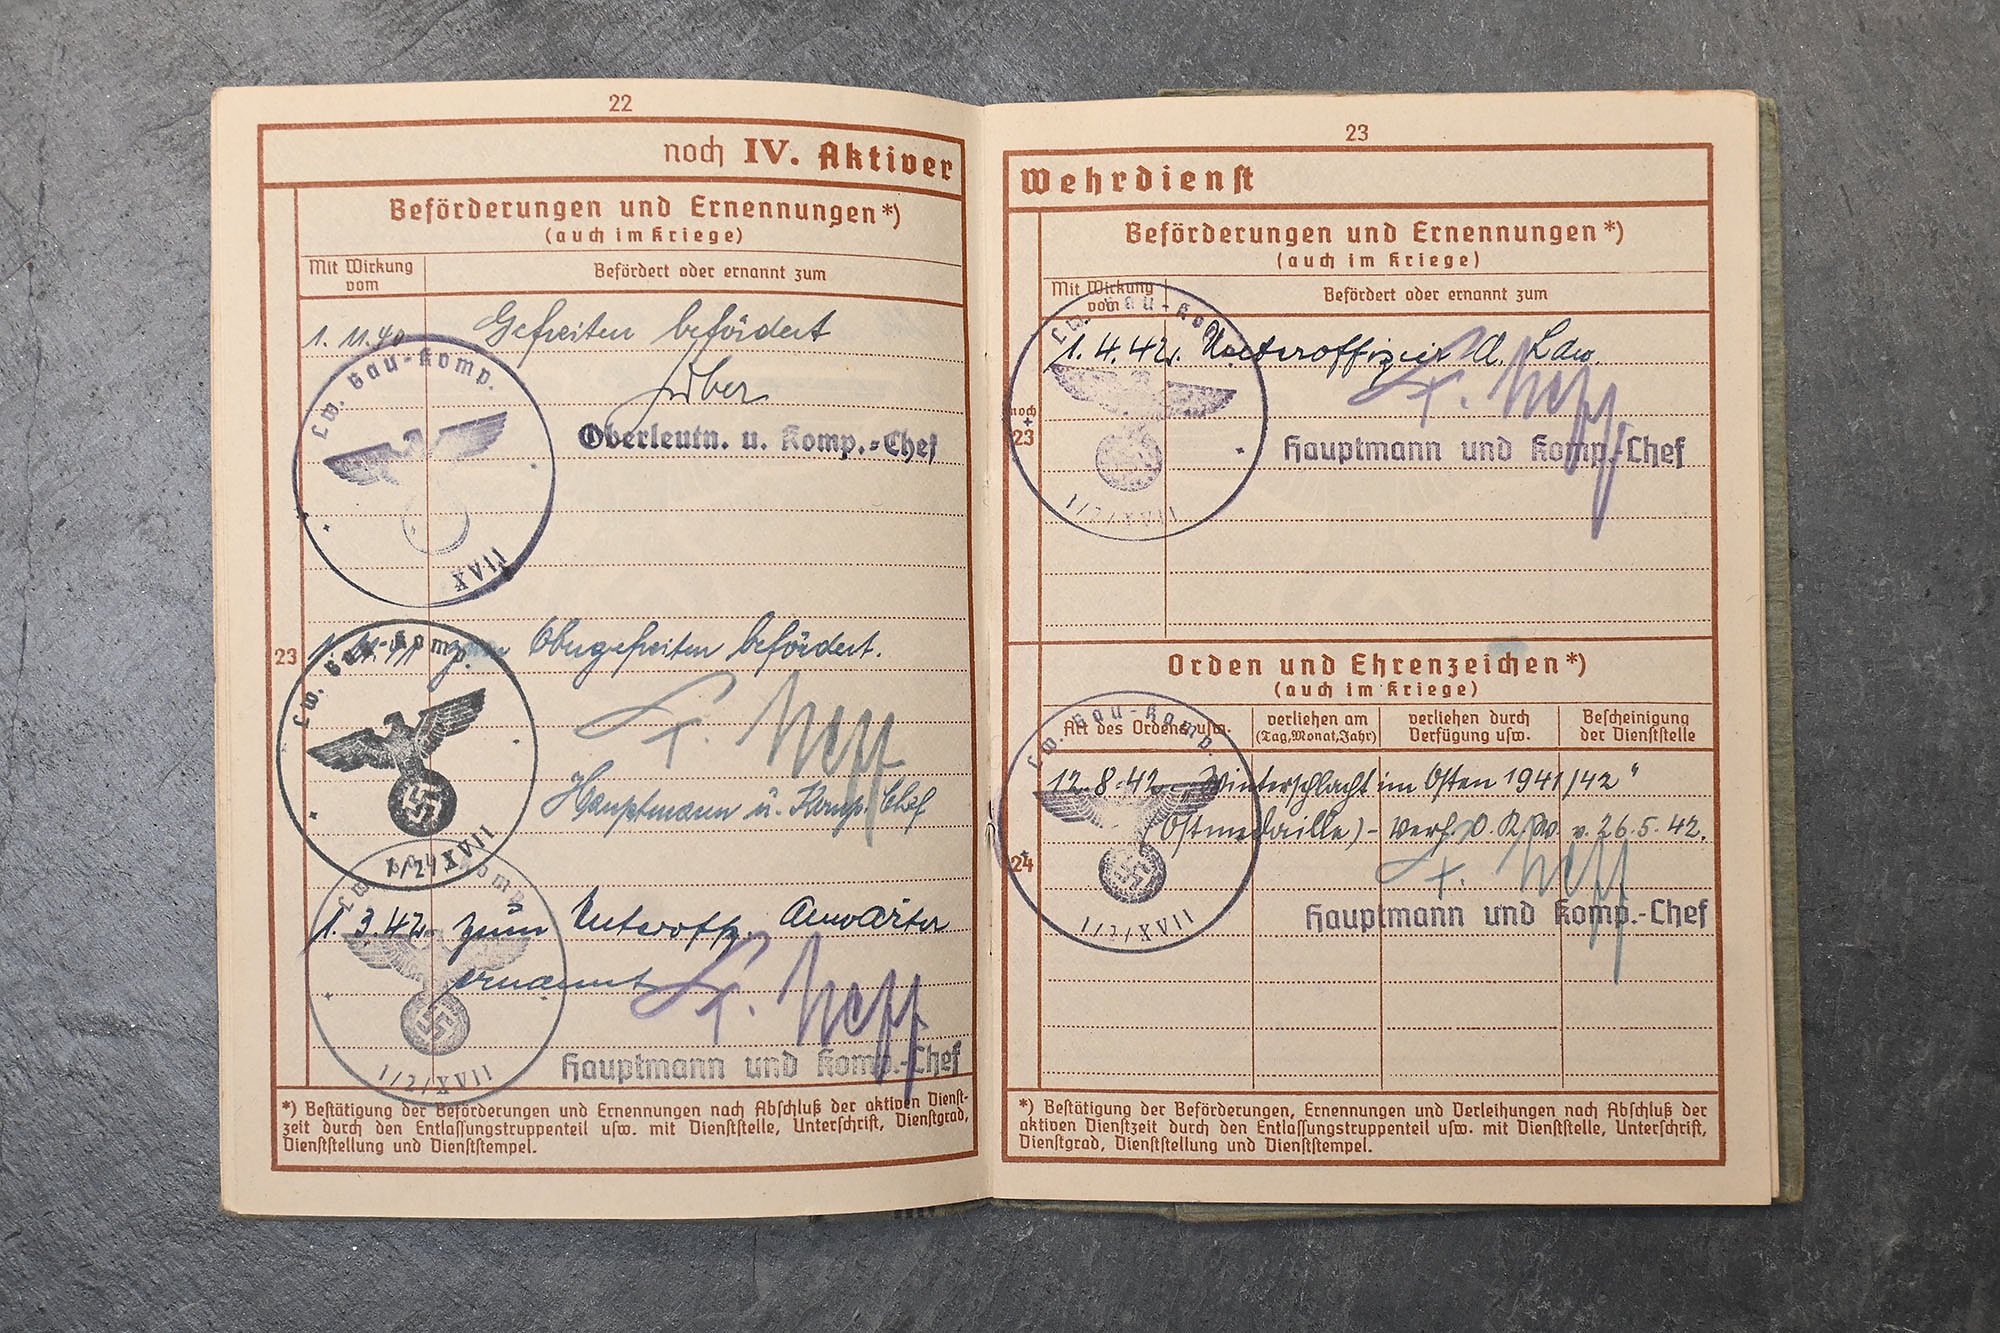 22
noch IV. Aktiver
Beförderungen und Ernennungen*)
(auch im Kriege)
Mit Wirkung vom
Befördert oder ernannt zum
1. 11. 40 Gefreiten befördert
Oberleutn. u. Komp.-Chef
Lw. Bau-Komp.
XVII
23
zum Obergefreiten befördert.
Hauptmann u. Komp. Chef
Lw. Bau-Komp.
1/2/XVII
1. 3. 42. zum Unteroff. Anwärter
ernannt
Hauptmann und Komp.-Chef
1/2/XVII
*) Bestätigung der Beförderungen und Ernennungen nach Abschluß der aktiven Dienst-
zeit durch den Entlassungstruppenteil usw. mit Dienststelle, Unterschrift, Dienstgrad,
Dienststellung und Dienststempel.
23
Wehrdienst
Beförderungen und Ernennungen*)
(auch im Kriege)
Mit Wirkung vom
Befördert oder ernannt zum
Lw. Bau-Komp.
1. 4. 42. Unteroffizier d. Ldw.
noch
23
Hauptmann und Komp.-Chef
1/2/XVII
Orden und Ehrenzeichen*)
(auch im Kriege)
Art des Ordens usw.
verliehen am
(Tag, Monat, Jahr)
verliehen durch
Verfügung usw.
Bescheinigung
der Dienststelle
Lw. Bau-Komp.
12. 8. 42 „Winterschlacht im Osten 1941/42"
(Ostmedaille) - Verf. O.K.W. v. 26. 5. 42.
24
Hauptmann und Komp.-Chef
1/2/XVII
*) Bestätigung der Beförderungen, Ernennungen und Verleihungen nach Abschluß der
aktiven Dienstzeit durch den Entlassungstruppenteil usw. mit Dienststelle, Unterschrift,
Dienstgrad, Dienststellung und Dienststempel.